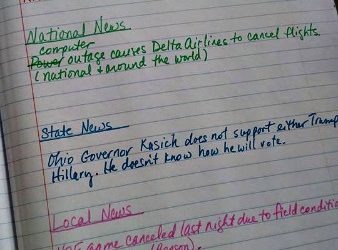 National News
computer
Power outage causes Delta Airlines to cancel flights.
(national + around the world)
State News
Ohio Governor Kasich does not support either Trump
Hillary. He doesn't know how he will vote.
Local News
game canceled last night due to field conditio